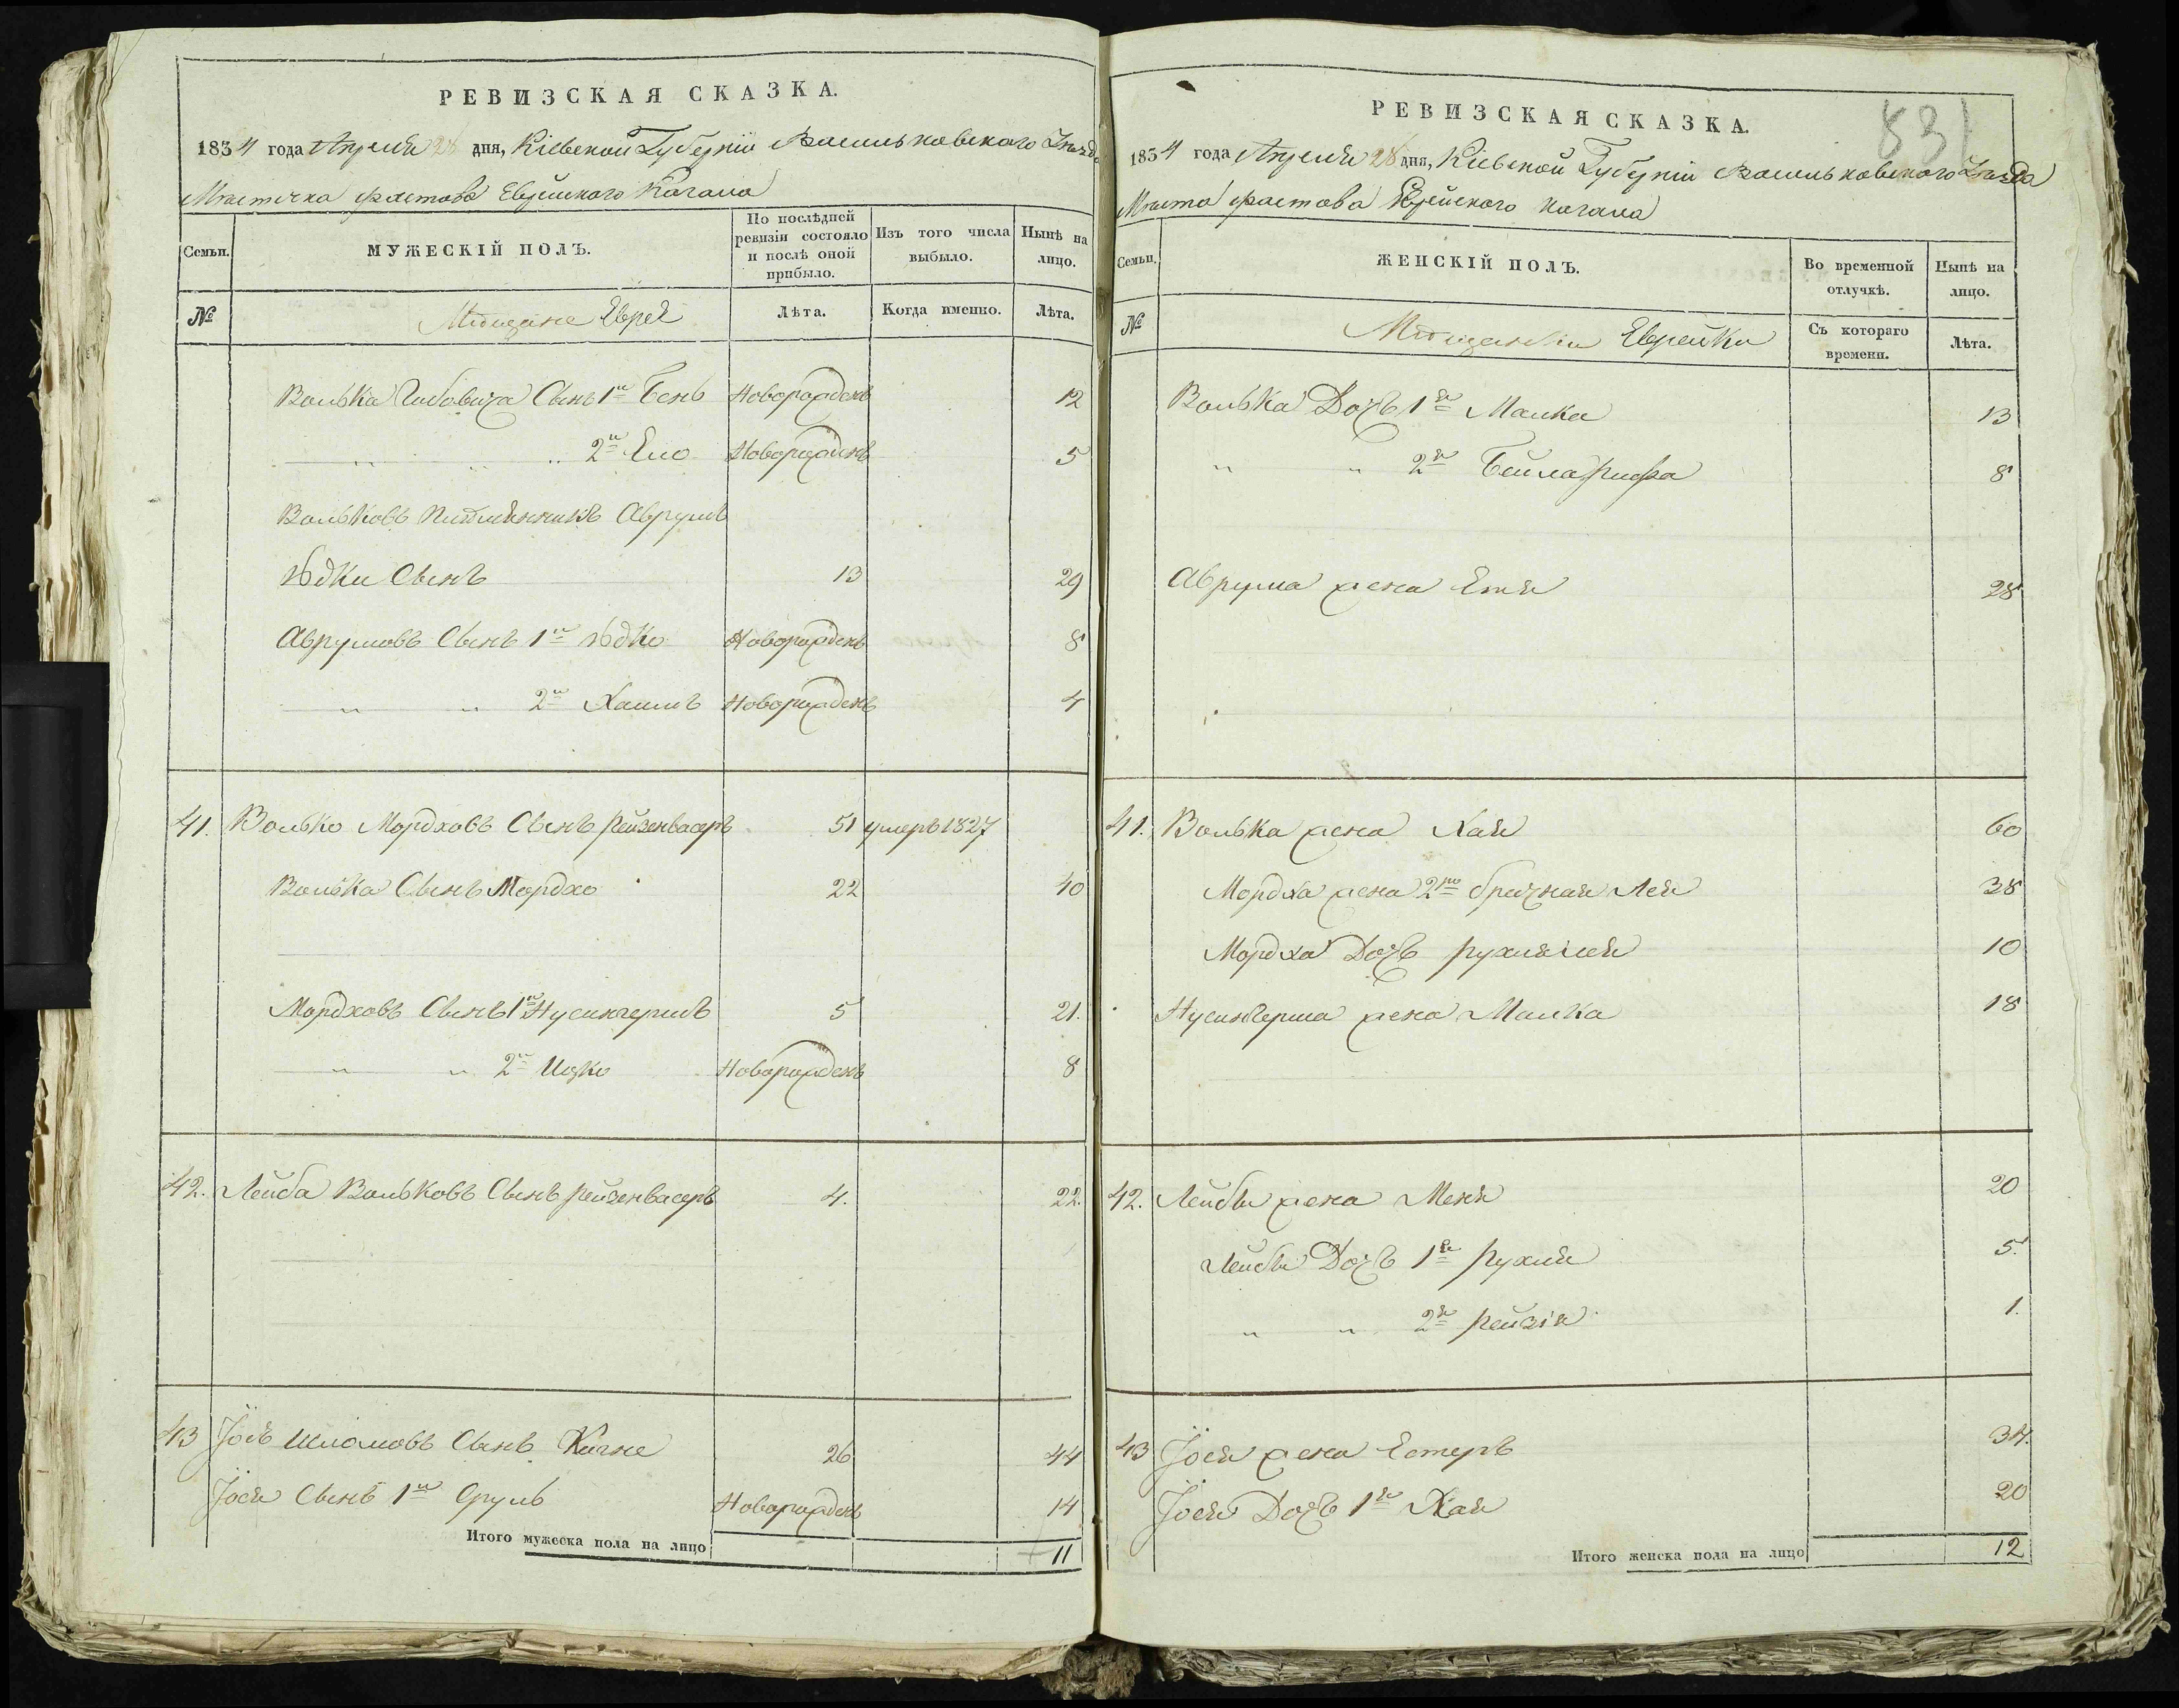 РЕВИЗСКАЯ СКАЗКА.
1834 года Апреля 28 дня, Кіевской Губерніи Васильковского Уѣзда
Мѣстечка Фастова Еврейского Кагала
Семьи.
МУЖЕСКІЙ ПОЛЪ.
По послѣдней ревизіи состояло и послѣ оной прибыло.
Изъ того числа выбыло.
Нынѣ на лицо.
№
Мѣщане Евреи
Лѣта.
Когда именно.
Лѣта.
Волька Сынъ 1й Бень Новорожденъ 12
„ „ 2й Ело Новорожденъ 5
Вольковъ Племянникъ Аврумъ
Юдки Сынъ 13 29
Аврумовъ Сынъ 1й Юдко Новорожденъ 8
„ „ 2й Хаимъ Новорожденъ 4
41. Волько Мордховъ Сынъ Рейзенвасеръ 51 умеръ 1827
Волька Сынъ Мордхо 22 40
Мордховъ Сынъ 1й Нусингершъ 5 21.
„ „ 2й Ицко Новорожденъ 8
42. Лейба Вольковъ Сынъ Рейзенвасеръ 4. 22.
43 Іось Шломовъ Сынъ 26 44
Іося Сынъ 1й Сруль Новорожденъ 14
Итого мужеска пола на лицо 11
831
РЕВИЗСКАЯ СКАЗКА.
1834 года Апреля 28 дня, Кіевской Губерніи Васильковского Уѣзда
Мѣста Фастова Еврейского Кагала
Семьи.
ЖЕНСКІЙ ПОЛЪ.
Во временной отлучкѣ.
Нынѣ на лицо.
№
Мѣщанки Еврейки
Съ котораго времени.
Лѣта.
Волька Дочь 1я Малка 13
„ „ 2я Бейла Рифа 8
Аврума жена Етя 28
41. Волька жена Хая 60
Мордха жена 2го брачная Лея 38
Мордха Дочь Рухлялея 10
Нусингерша жена Малка 18
42. Лейбы жена Меня 20
Лейбы Дочь 1я Рухля 5.
„ „ 2я Рейзія 1.
43 Іося жена Естеръ 34.
Іося Дочь 1я Хая 20
Итого женска пола на лицо 12